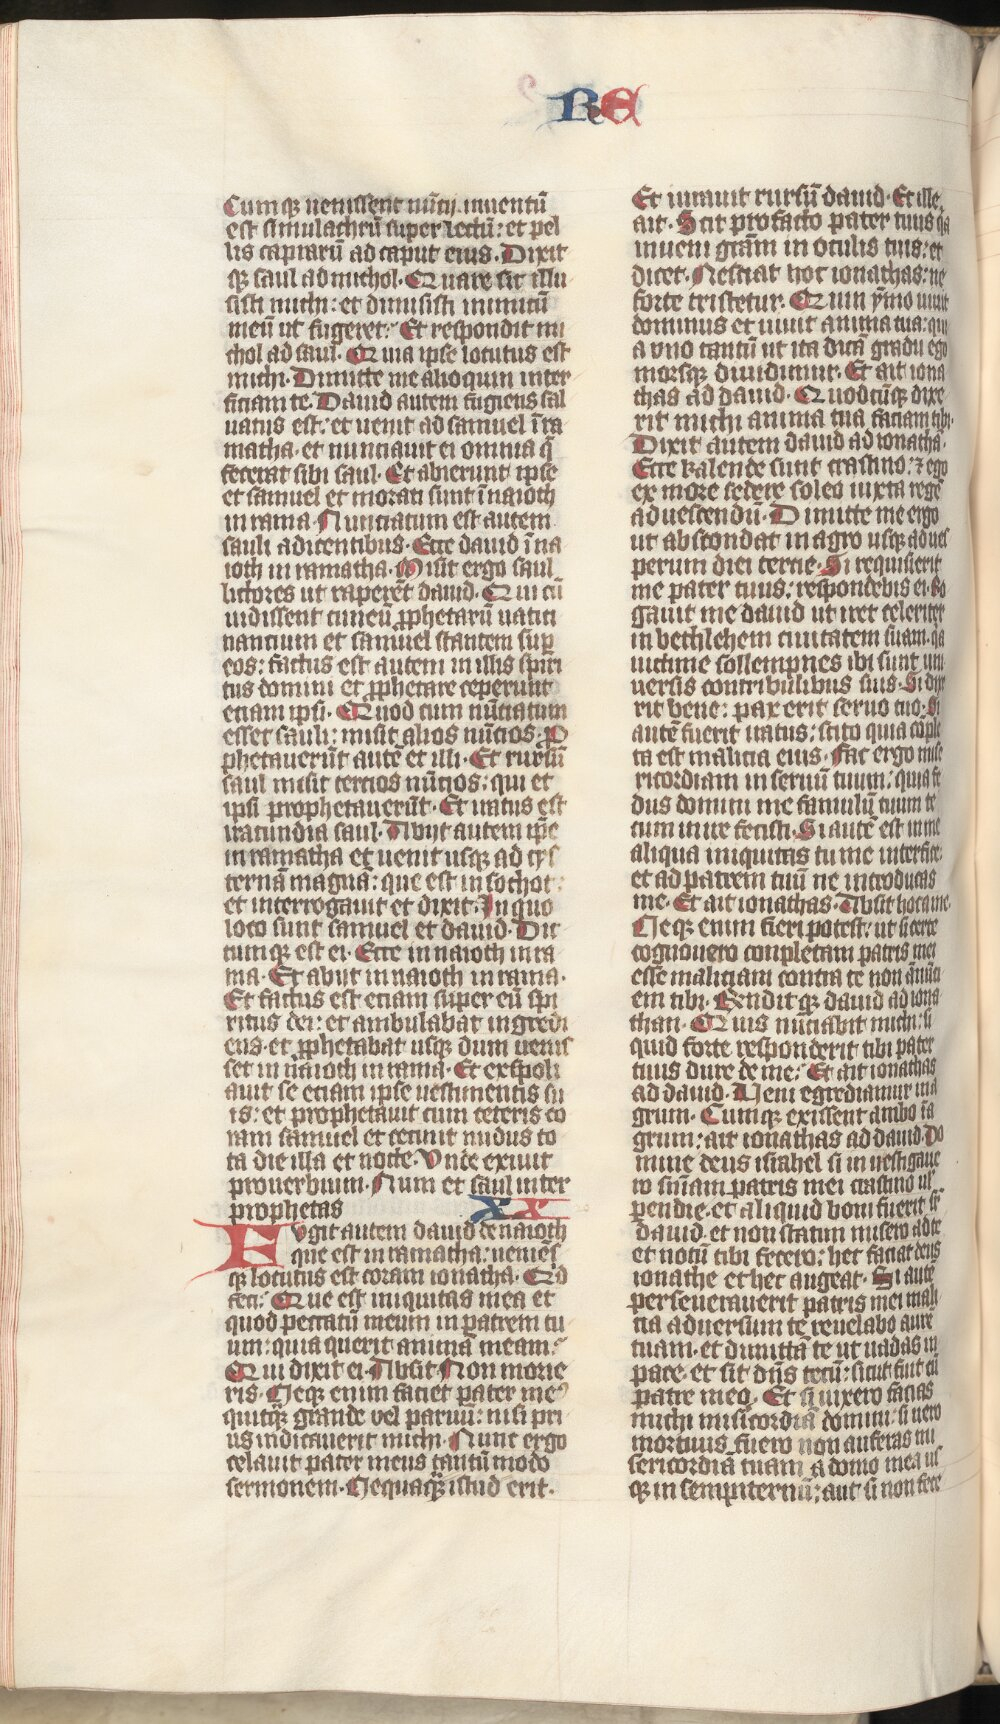 RE
Cumqꝫ venissent nūtij inventū
est simulachrū super lectū: et pel
lis caprarū ad caput eius. Dixit
qꝫ saul ad michol. Quare sic illu
sisti michi: et dimisisti inimicū
meū ut fugeret. Et respondit mi
chol ad saul. Quia ipse locutus est
michi. Dimitte me alioquin inter
ficiam te. David autem fugiens sal
vatus est: et venit ad samuel ī ra
matha. et nunciavit ei omnia q̄
fecerat sibi saul. Et abierunt ipse
et samuel et morati sunt ī naioth
in rama. Nunciatum est autem
sauli a dicentibus. Ecce david ī na
ioth in ramatha. Misit ergo saul
lictores ut raperēt david. Qui cū
vidissent cuneū ꝓphetarū vatici
nancium et samuel stantem suꝑ
eos: factus est autem in illis spiri
tus domini et ꝓphetare ceperunt
etiam ipsi. Quod cum nūciatum
esset sauli: misit alios nūcios. P
phetaverūt autē et illi. Et rursū
saul misit tercios nūcios: qui et
ipsi prophetaverūt. Et iratus est
iracundia saul. Abijt autem ip̄e
in ramatha et venit usqꝫ ad cys
ternā magnā: que est in sochot:
et interrogavit et dixit. In quo
loco sunt samuel et david. Dic
tumqꝫ est ei. Ecce in naioth in ra
ma. Et abiit in naioth in rama.
Et factus est etiam super eū spi
ritus dei: et ambulabat ingredi
ens. et ꝓphetabat usqꝫ dum venis
set in naioth in rama. Et exspoli
avit se etiam ipse vestimentis su
is: et prophetavit cum ceteris co
ram samuel et cecinit nudus to
ta die illa et nocte. Unde exivit
proverbium. Num et saul inter
prophetas XX
Fugit autem david de naioth
que est in ramatha: veniēs
qꝫ locutus est coram ionatha. Qid
feci: Que est iniquitas mea et
quod peccatū meum in patrem tu
um: quia querit animā meam:
Qui dixit ei. Absit. Non morie
ris. Neqꝫ enim faciet pater me9
quitqꝫ grande vel parvū: nisi pri
us indicaverit michi. Nunc ergo
celavit pater meus tantū modo
sermonem. Nequaqꝫ istud erit.
Et iuravit rursū david. Et ille
ait. Scit profecto pater tuus q̄a
inveni grām in oculis tuis: et
dicet. Nesciat hoc ionathas: ne
forte tristetur. Quin ymo vivit
dominus et vivit anima tua: qui
a uno tantū ut ita dicā gradu ego
morsqꝫ dividimur. Et ait iona
thas ad david. Quodcūqꝫ dixe
rit michi anima tua faciam tibi.
Dixit autem david ad ionathā.
Ecce kalende sunt crastino: ⁊ ego
ex more sedere soleo iuxta regē
ad vescendū. Dimitte me ergo
ut abscondar in agro usqꝫ ad ves
perum diei tercie. Si requisierit
me pater tuus: respondebis ei. Ro
gavit me david ut iret celeriter
in bethlehem civitatem suam. q̄a
victime sollempnes ibi sunt uni
versis contribulibus suis. Si dixe
rit bene: pax erit servo tuo. Si
autē fuerit iratus: scito quia cōple
ta est malicia eius. Fac ergo mise
ricordiam in servū tuum: quia fe
dus domini me famulū tuum te
cum inire fecisti. Si autē est in me
aliqua iniquitas tu me interfice:
et ad patrem tuū ne introducas
me. Et ait ionathas. Absit hoc a me.
Neqꝫ enim fieri potest: ut si certe
cognovero conpletam patris mei
esse maliciam contra te non ānūci
em tibi. Rendit qꝫ david ad iona
than. Quis nūciabit michi: si
quid forte responderit tibi pater
tuus dure de me: Et ait ionathas
ad david. Veni egrediamur in a
grum. Cumqꝫ exissent ambo ī a
grum: ait ionathas ad david. Do
mine deus israhel si investigave
ro sn̄iam patris mei crastino vel
pendie. et aliquid boni fuerit sr̄
david. et non statim misero ad te
et notū tibi fecero: hec faciat deus
ionathe et hec augeat. Si autē
perseveraverit patris mei mali
cia adversum te revelabo aurē
tuam. et dimittā te ut vadas in
pace. et sit dn̄s tecū: sicut fuit cū
patre meo. Et si vixero facias
michi misericordiā domini: si vero
mortuus fuero non auferas mi
sericordiā tuam a domo mea us
qꝫ in sempiternū: aut si non fece